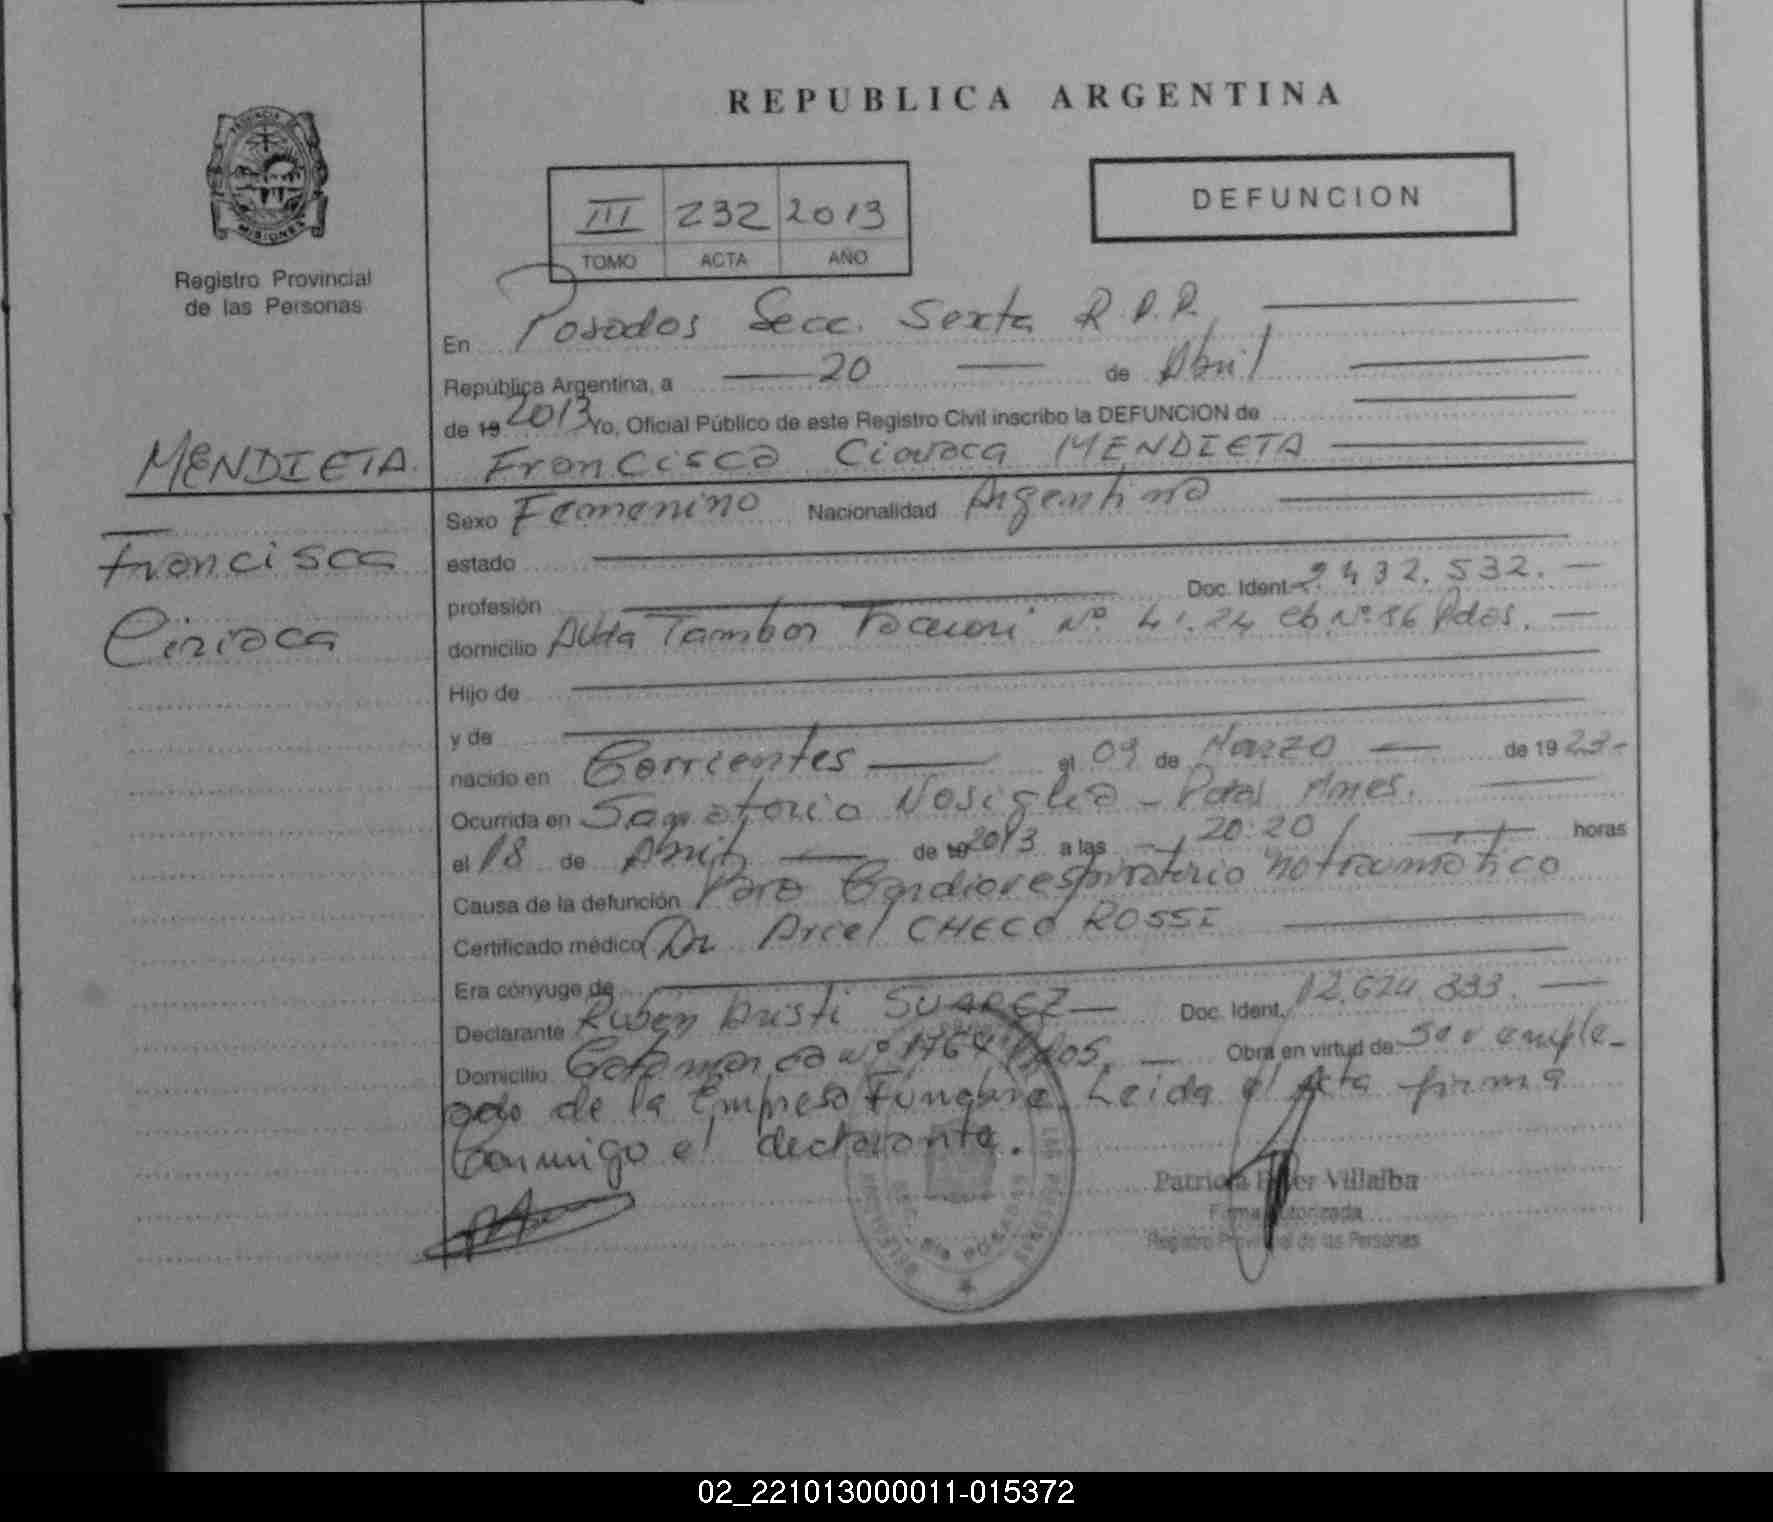 REPUBLICA ARGENTINA
DEFUNCION
III 232 2013
TOMO ACTA AÑO
Registro Provincial
de las Personas
En Posadas Secc. Sexta R.P.P.
República Argentina, a 20 de Abril
de 19 2013 Yo, Oficial Público de este Registro Civil inscribo la DEFUNCION de
MENDIETA
Francisca Ciriaca MENDIETA
Francisca
Ciriaca
Sexo Femenino Nacionalidad Argentina
estado
profesión Doc. Ident. 2.432.532.
domicilio Avda Tambor Tacuari Nº 41.24 Nº Pdas.
Hijo de
y de
nacido en Corrientes el 09 de Marzo de 19 23-
Ocurrida en Sanatorio Nosiglia - Pdas Mnes.
el 18 de Abril de 19 2013 a las 20:20 horas
Causa de la defunción Paro Cardiorespiratorio no traumático
Certificado médico Dr. Ariel CHECO ROSSI
Era cónyuge de
Declarante Ruben SUAREZ Doc. Ident. 12.624.333.
Domicilio Catamarca nº 1764 Pdas. Obra en virtud de ser emple-
ado de la Empresa Fúnebre. Leida el Acta firma
Conmigo el declarante.
Patricia Villalba
Firma Autorizada
Registro Provincial de las Personas
02_221013000011-015372